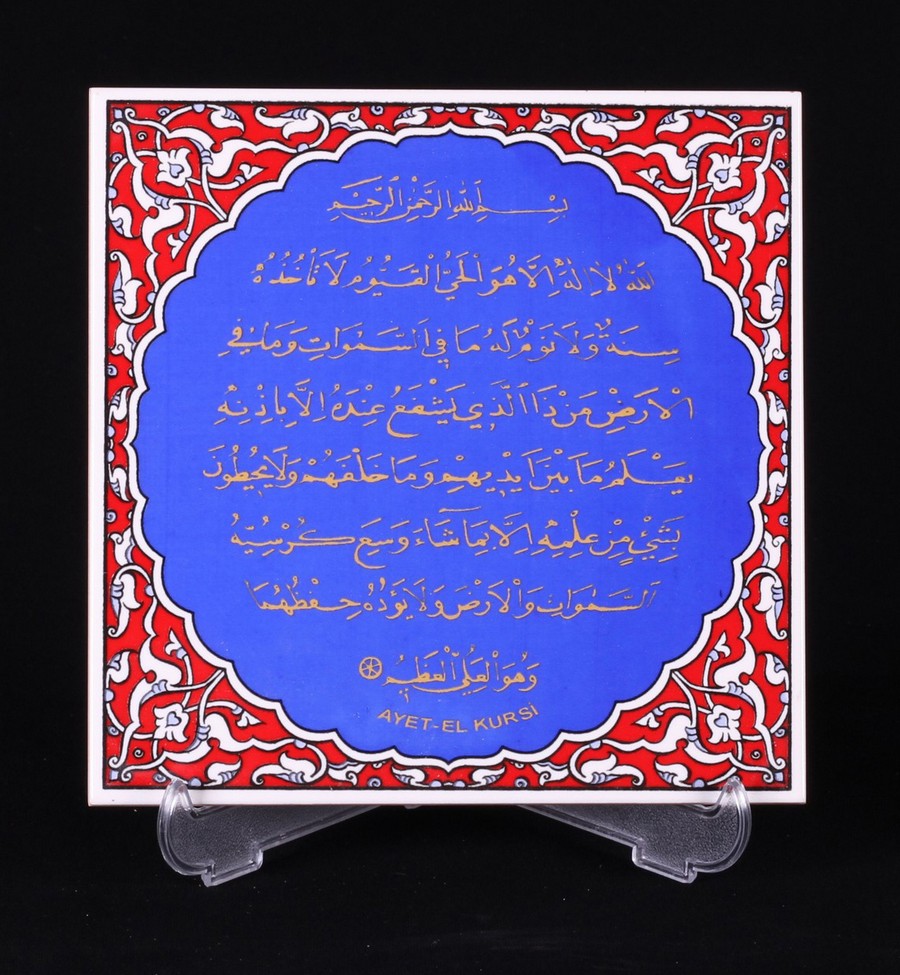 بِسْمِ اللّٰهِ الرَّحْمٰنِ الرَّحِيمِ
اَللّٰهُ لَا اِلٰهَ اِلَّا هُوَ الْحَيُّ الْقَيُّومُ لَا تَأْخُذُهُ
سِنَةٌ وَلَا نَوْمٌ لَهُ مَا فِي السَّمٰوَاتِ وَمَا فِي
الْاَرْضِ مَنْ ذَا الَّذِي يَشْفَعُ عِنْدَهُ اِلَّا بِاِذْنِهِ
يَعْلَمُ مَا بَيْنَ اَيْدِيهِمْ وَمَا خَلْفَهُمْ وَلَا يُحِيطُونَ
بِشَيْءٍ مِنْ عِلْمِهِ اِلَّا بِمَا شَاءَ وَسِعَ كُرْسِيُّهُ
السَّمٰوَاتِ وَالْاَرْضَ وَلَا يَؤُدُهُ حِفْظُهُمَا
وَهُوَ الْعَلِيُّ الْعَظِيمُ
AYET-EL KURSİ